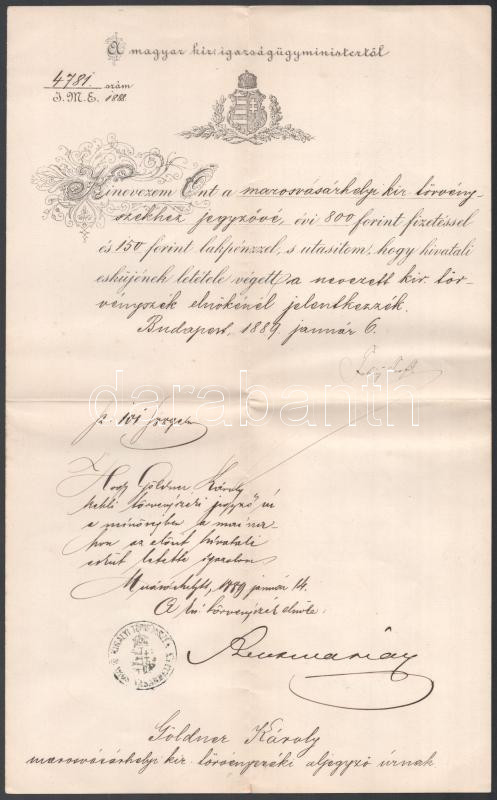 A magyar kir. igazságügyministertől
4781. szám
I.M.E. 1888.
Kinevezem Önt a marosvásárhelyi kir. törvény-
székhez jegyzővé, évi 800 forint fizetéssel
és 150 forint lakpénzzel, s utasítom, hogy hivatali
esküjének letétele végett a nevezett kir. tör-
vényszék elnökénél jelentkezzék.
Budapest, 1889 január 6.
darabanth
Hogy Göldner Károly
törvényszéki jegyző úr
e minőségben a mai na-
pon az előírt hivatali
esküt letette igazolom
1889 január 14.
A kir. törvényszék elnöke:
Göldner Károly
marosvásárhelyi kir. törvényszéki aljegyző úrnak